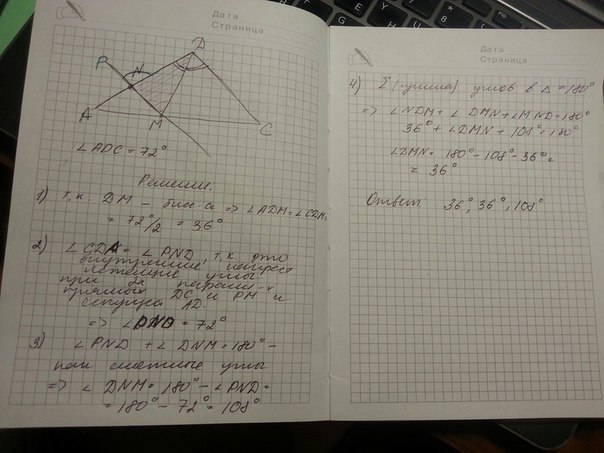 Дата
Страница
P
N
D
A
M
C
∠ADC = 72°
Решение.
1) т.к. DM – бис-са ⇒ ∠ADM = ∠CDM =
= 72°/2 = 36°
2) ∠CDA = ∠PND, т.к. это
внутренние накрест
лежащие углы
при
прямых DC и PM и
секущей AD.
⇒ ∠PND = 72°
3) ∠PND + ∠DNM = 180° –
как смежные углы
⇒ ∠DNM = 180° – ∠PND =
= 180° – 72° = 108°
Дата
Страница
4) Σ (сумма) углов в Δ = 180°
⇒ ∠NDM + ∠DMN + ∠MND = 180°
36° + ∠DMN + 108° = 180°
∠DMN = 180° – 108° – 36° =
= 36°
Ответ 36°, 36°, 108°